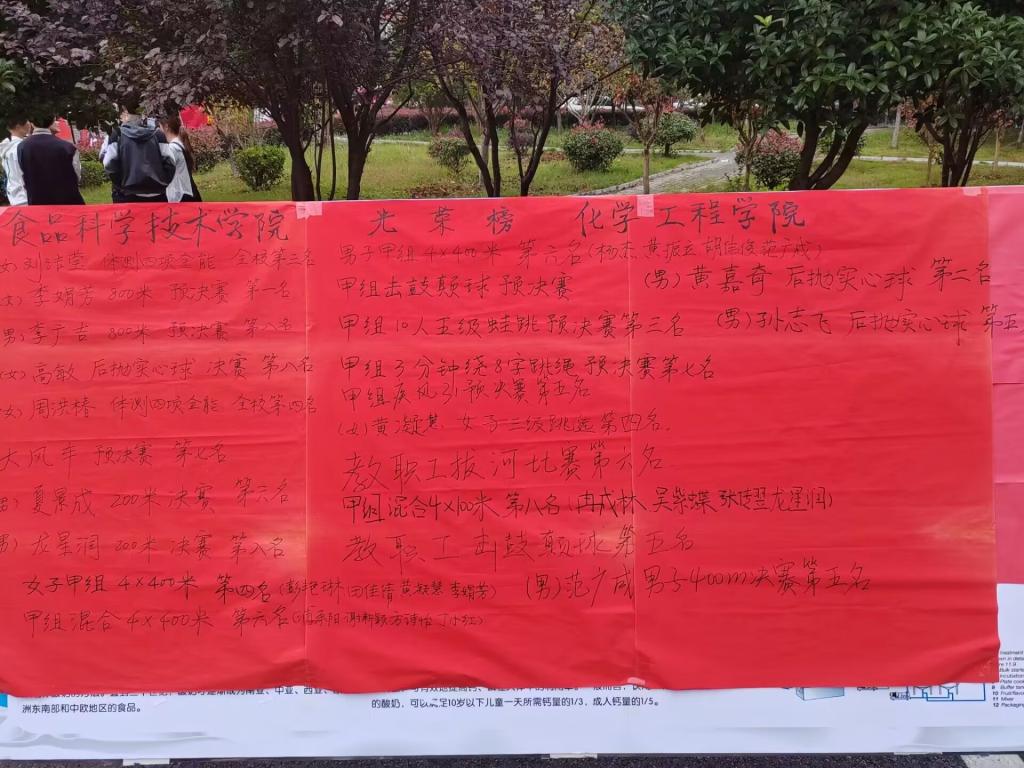 食品科学技术学院 光荣榜 化学工程学院
女) 刘洁莹 体测四项全能 全校第三名
女) 李娟芳 800米 预决赛 第一名
男) 李广吉 800米 预决赛 第八名
(女) 高敏 后抛实心球 决赛 第八名
(女) 周洪椿 体测四项全能 全校第四名
大风车 预决赛 第七名
男) 夏景成 200米 决赛 第六名
男) 龙星润 200米 决赛 第八名
女子甲组 4×400米 第四名(彭艳琳 田佳倩 黄凝慧 李娟芳)
甲组混合 4×400米 第六名(阳 谢 方诗怡 丁小红)
男子甲组 4×400米 第六名(杨杰 黄振立 胡佳俊 范广成)
甲组击鼓颠球 预决赛
甲组10人五级蛙跳 预决赛第三名
甲组3分钟绕8字跳绳 预决赛第七名
甲组疾风引预决赛第五名
(女)黄凝慧 女子三级跳远第四名
教职工拔河比赛第六名
甲组混合4×100米 第八名(冉成林 吴紫蝶 张 龙星润)
教职工击鼓颠球第五名
(男)范广成 男子400m决赛第五名
(男)黄嘉奇 后抛实心球 第二名
(男)孙志飞 后抛实心球 第五
洲东南部和中欧地区的食品。
的酸奶，可以满足10岁以下儿童一天所需钙量的1/3，成人钙量的1/5。